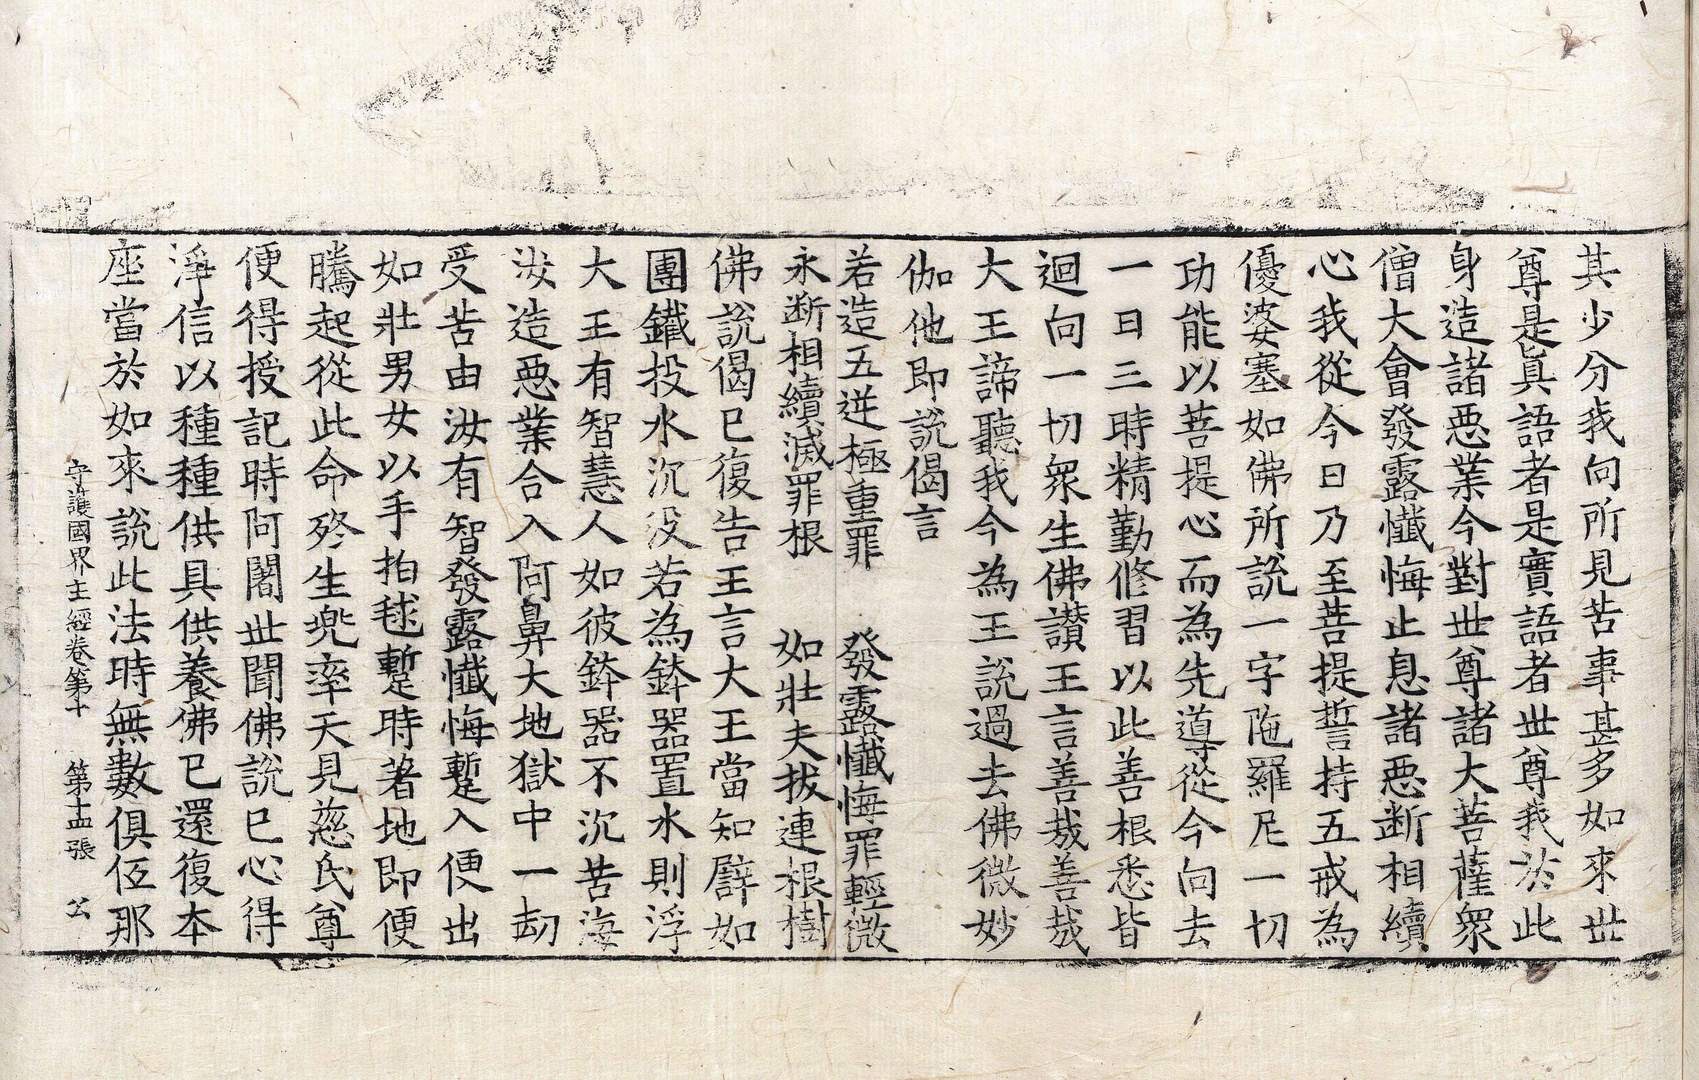 其少分我向所見苦事甚多如來世
尊是眞語者是實語者世尊我於此
身造諸惡業今對世尊諸大菩薩衆
僧大會發露懺悔止息諸惡斷相續
心我從今日乃至菩提誓持五戒為
優婆塞如佛所說一字陁羅尼一切
功能以菩提心而為先導從今向去
一日三時精勤修習以此善根悉皆
迴向一切衆生佛讚王言善哉善哉
大王諦聽我今為王說過去佛微妙
伽他即說偈言
若造五逆極重罪　發露懺悔罪輕微
永断相續滅罪根　如壯夫拔連根樹
佛說偈已復告王言大王當知譬如
團鐵投水沉没若為鉢器置水則浮
大王有智慧人如彼鉢器不沉苦海
汝造惡業合入阿鼻大地獄中一劫
受苦由汝有智發露懺悔蹔入便出
如壯男女以手拍毬蹔時著地即便
騰起從此命終生兜率天見慈氏尊
便得授記時阿闍世聞佛說已心得
淨信以種種供具供養佛已還復本
座當於如來說此法時無數俱伍那
守護國界主經卷第十　第十五張　公